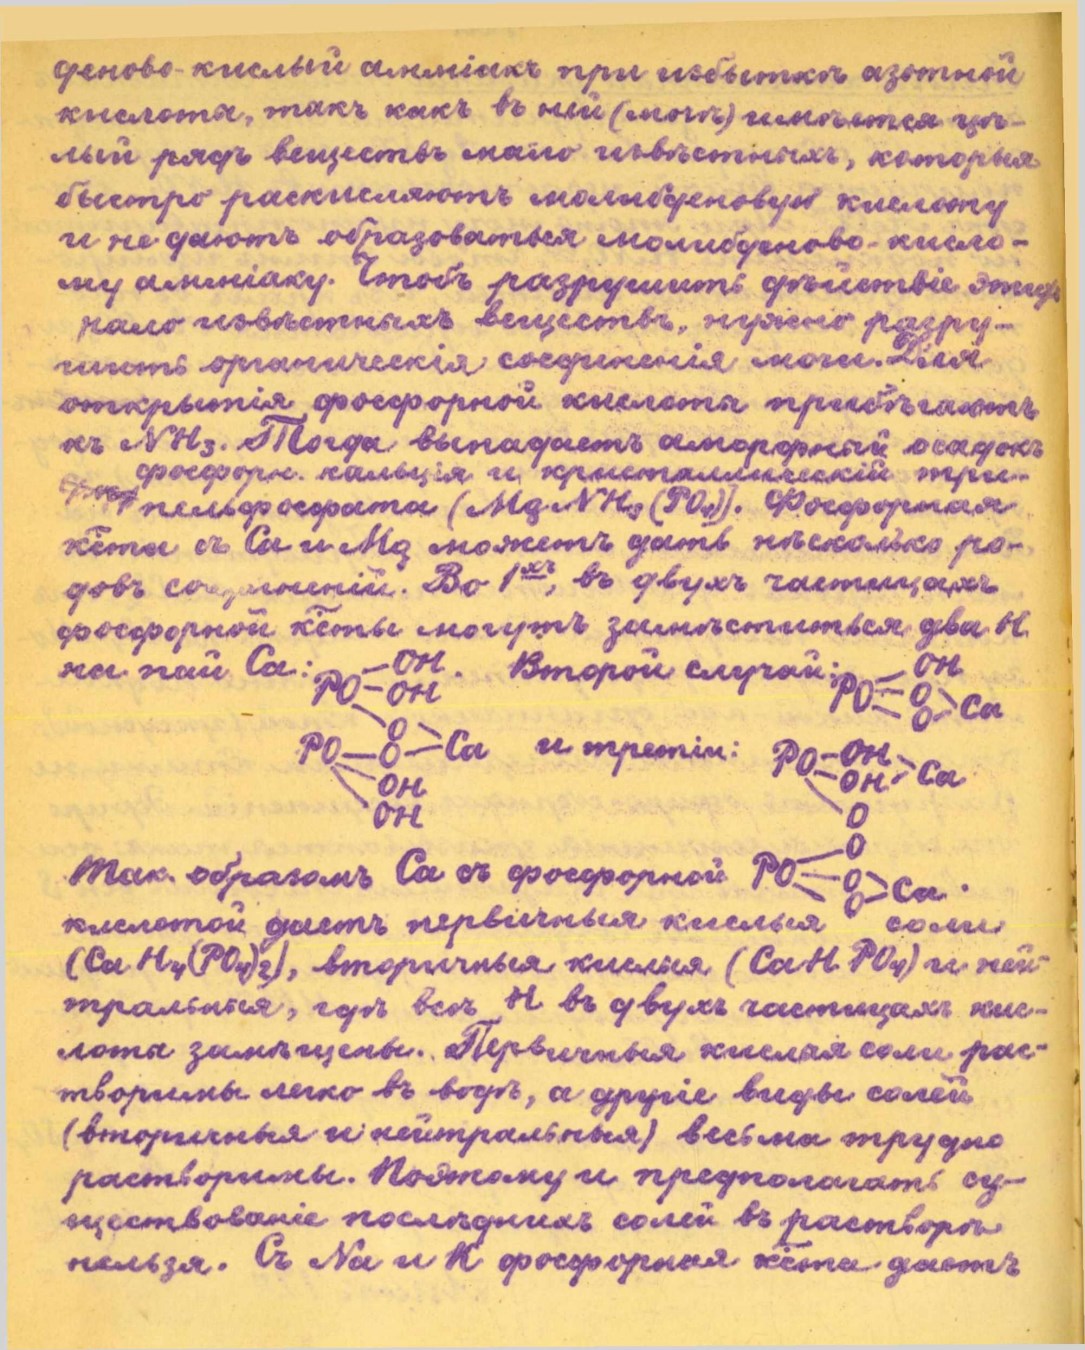 деново-кислый амміакъ при избыткѣ азотной
кислоты, такъ какъ въ ней (мочѣ) имѣется цѣ-
лый рядъ веществъ мало извѣстныхъ, которыя
быстро раскисляютъ молибденовую кислоту
и не даютъ образоваться молибденово-кисло-
му амміаку. Чтобъ разрушить дѣйствіе этихъ
мало извѣстныхъ веществъ, нужно разру-
шить органическія соединенія мочи. Для
открытія фосфорной кислоты прибѣгаютъ
къ NH3. Тогда выпадаетъ аморфный осадокъ
фосфорн. кальція и кристаллическій три-
пельфосфата (MgNH4(PO4)]. Фосфорная
к̈та съ Ca и Mg можетъ дать нѣсколько ро-
довъ соединеній. Во 1хъ, въ двухъ частицахъ
фосфорной к̈ты могутъ замѣститься два H
на пай Ca: PO–OH–OH . Второй случай: PO–OH=O–O>Ca
PO–O–O>Ca OH OH и третій: PO–OH–OH>Ca O
Такъ образомъ Ca съ фосфорной PO–O–O–O>Ca .
кислотой даетъ первичныя кислыя соли
(CaH4(PO4)2), вторичныя кислыя (CaHPO4) и ней-
тральныя, гдѣ всѣ H въ двухъ частицахъ кис-
лоты замѣщены. Первичныя кислая соли рас-
творимы легко въ водѣ, а другіе виды солей
(вторичныя и нейтральныя) весьма трудно
растворимы. Поэтому и предполагать су-
ществованіе послѣднихъ солей въ растворѣ
нельзя. Съ Na и K фосфорная к̈та даетъ